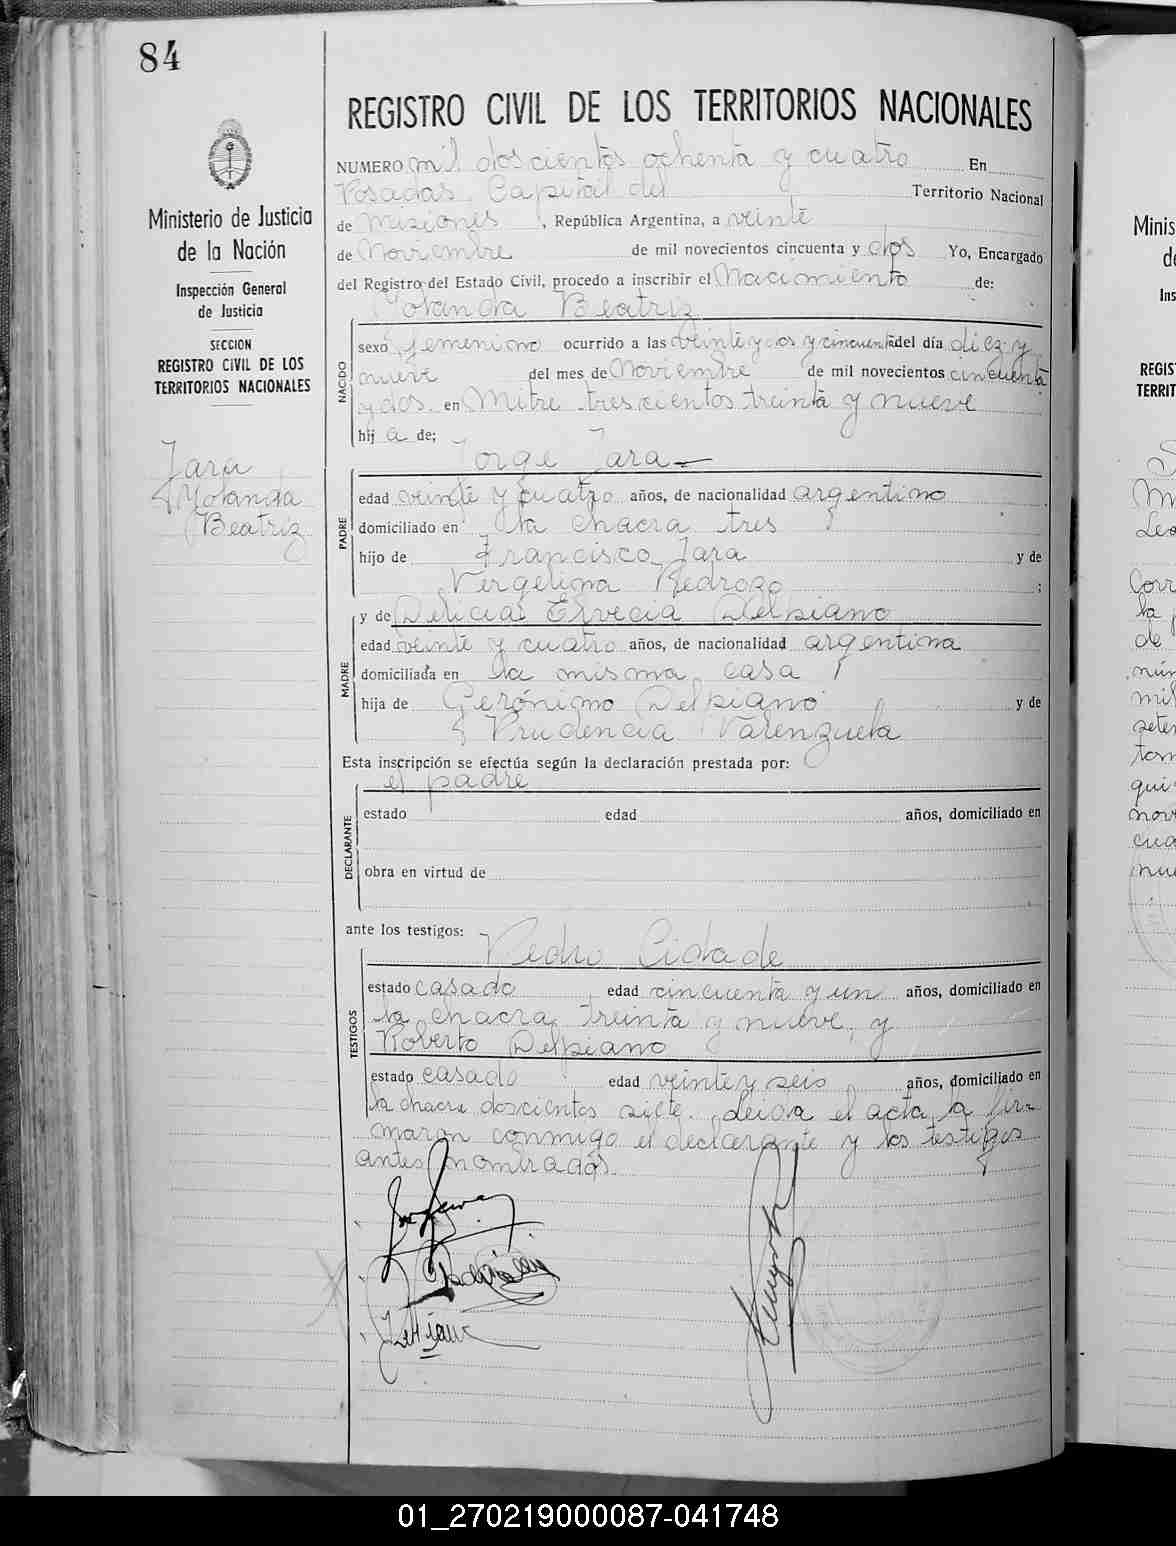 84
Ministerio de Justicia
de la Nación
Inspección General
de Justicia
SECCION
REGISTRO CIVIL DE LOS
TERRITORIOS NACIONALES
Jara
Yolanda
Beatriz
REGISTRO CIVIL DE LOS TERRITORIOS NACIONALES
NUMERO mil doscientos ochenta y cuatro En
Posadas, Capital del Territorio Nacional
de Misiones, República Argentina, a veinte
de Noviembre de mil novecientos cincuenta y dos Yo, Encargado
del Registro del Estado Civil, procedo a inscribir el Nacimiento de:
Yolanda Beatriz
NACIDO
sexo femenino ocurrido a las veinte y dos y cincuenta del día diez y
nueve del mes de Noviembre de mil novecientos cincuenta
y dos en Mitre trescientos treinta y nueve
hij a de;
Jorge Jara
PADRE
edad veinte y cuatro años, de nacionalidad argentino
domiciliado en la chacra tres
hijo de Francisco Jara y de
Vergelina Pedrozo ;
y de Delicia Elvecia Delpiano
MADRE
edad veinte y cuatro años, de nacionalidad argentina
domiciliada en la misma casa
hija de Gerónimo Delpiano y de
Prudencia Valenzuela
Esta inscripción se efectúa según la declaración prestada por:
el padre
DECLARANTE
estado edad años, domiciliado en
obra en virtud de
ante los testigos:
Pedro Cidade
TESTIGOS
estado casado edad cincuenta y un años, domiciliado en
la chacra treinta y nueve, y
Roberto Delpiano
estado casado edad veinte y seis años, domiciliado en
la chacra doscientos siete. Leida el acta, la fir-
maron conmigo el declarante y los testigos
antes nombrados.
Minis
de
Ins
REGIS
TERRIT
Corr
la
de
núm
mil
seten
tom
qui
nov
cua
nue
01_270219000087-041748